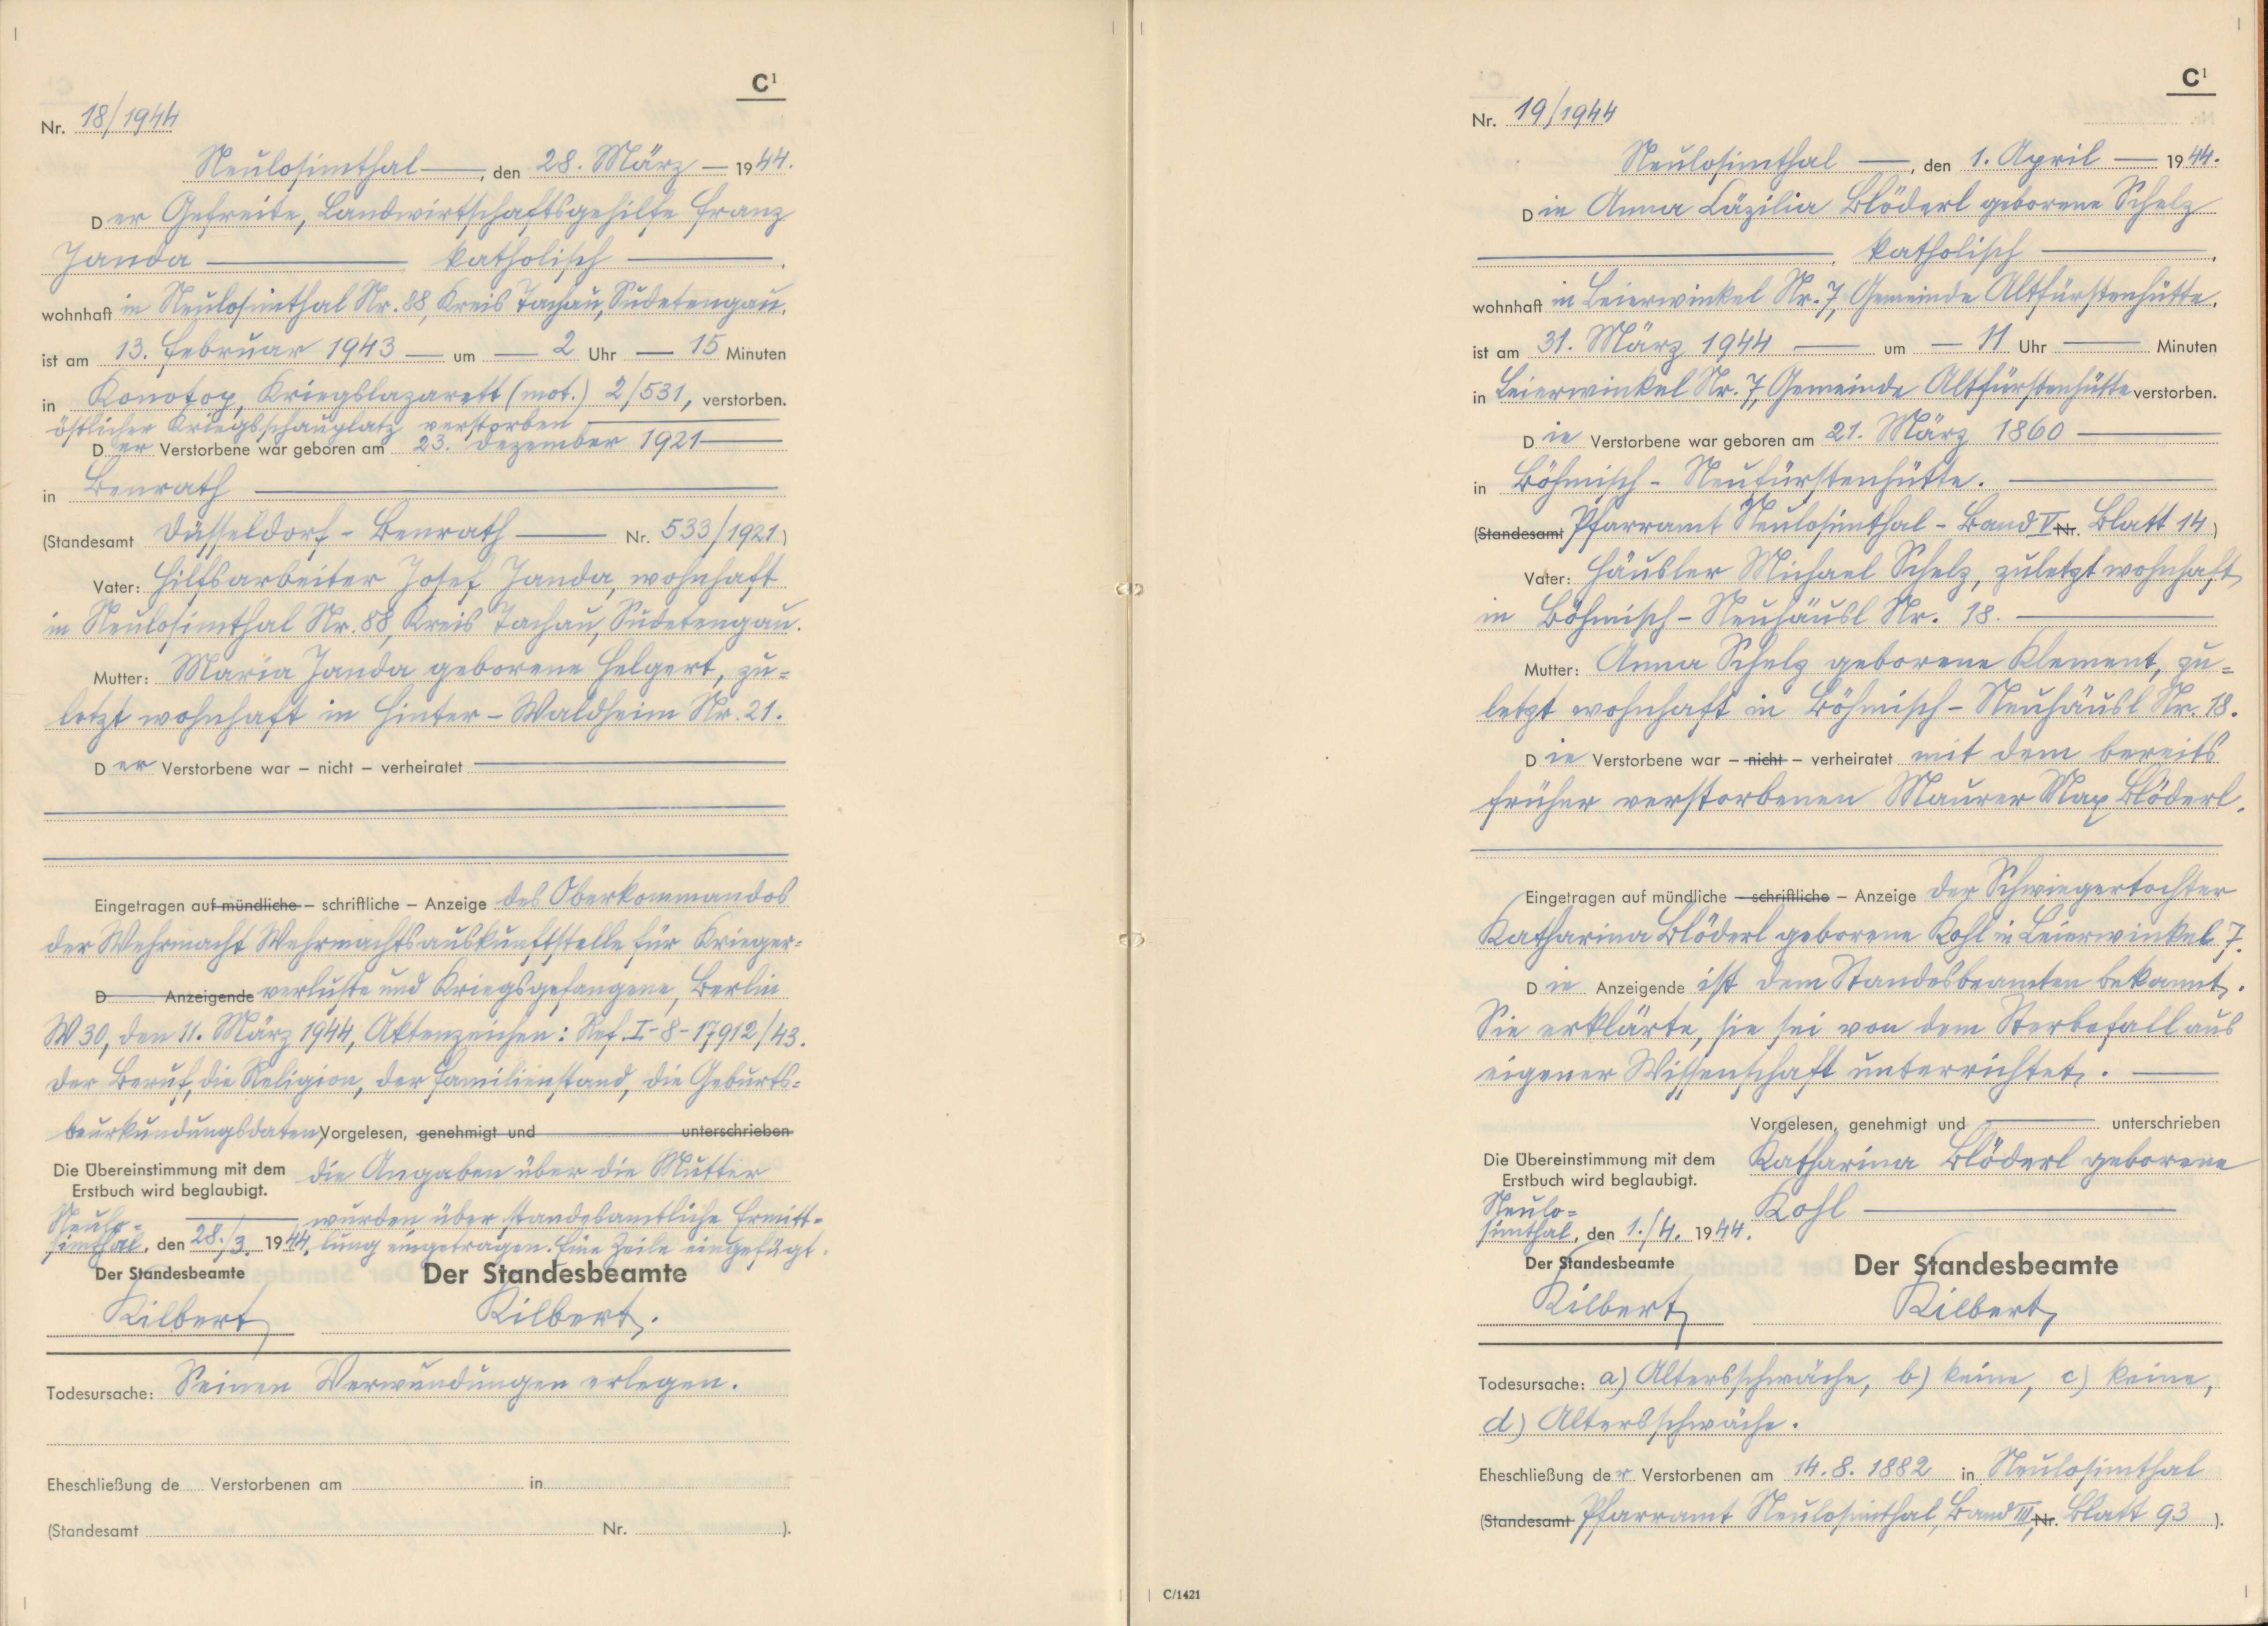 C¹
Nr. 18/1944
Neulosimthal —, den 28. März — 1944.
Der Gefreite, Landwirtschaftsgehilfe Franz
Janda — katholisch —.
wohnhaft in Neulosimthal Nr. 88, Kreis Tachau, Sudetengau,
ist am 13. Februar 1943 — um — 2 Uhr — 15 Minuten
in Konotop, Kriegslazarett (mot.) 2/531, verstorben.
östlicher Kriegsschauplatz verstorben —
Der Verstorbene war geboren am 23. Dezember 1921 —
in Benrath —
(Standesamt Düsseldorf-Benrath — Nr. 533/1921)
Vater: Hilfsarbeiter Josef Janda, wohnhaft
in Neulosimthal Nr. 88, Kreis Tachau, Sudetengau.
Mutter: Maria Janda geborene Helgert, zu=
letzt wohnhaft in Hinter-Waldheim Nr. 21.
Der Verstorbene war – nicht – verheiratet —
Eingetragen auf mündliche – schriftliche – Anzeige des Oberkommandos
der Wehrmacht Wehrmachtsauskunftstelle für Krieger=
D Anzeigende verluste und Kriegsgefangene, Berlin
W 30, den 11. März 1944, Aktenzeichen: Ref. I-8-17912/43.
Der Beruf, die Religion, der Familienstand, die Geburts=
beurkundungsdaten, Vorgelesen, genehmigt und unterschrieben
Die Übereinstimmung mit dem
Erstbuch wird beglaubigt.
die Angaben über die Mutter
wurden über standesamtliche Ermitt=
lung eingetragen. Eine Zeile eingefügt.
Neulo=
simthal, den 28./3. 1944,
Der Standesbeamte Der Standesbeamte
Kilbert Kilbert.
Todesursache: Seinen Verwundungen erlegen.
Eheschließung de Verstorbenen am in
(Standesamt Nr. ).
C¹
Nr. 19/1944
Neulosimthal —, den 1. April — 1944.
Die Anna Cäzilia Blöderl geborene Schelz
—, katholisch —,
wohnhaft in Leierwinkel Nr. 7, Gemeinde Altfürstenhütte,
ist am 31. März 1944 — um — 11 Uhr — Minuten
in Leierwinkel Nr. 7, Gemeinde Altfürstenhütte verstorben.
Die Verstorbene war geboren am 21. März 1860 —
in Böhmisch-Neufürstenhütte. —
(Standesamt Pfarramt Neulosimthal - Band V Nr. Blatt 14)
Vater: Häusler Michael Schelz, zuletzt wohnhaft
in Böhmisch-Neuhäusl Nr. 18. —
Mutter: Anna Schelz geborene Klement, zu=
letzt wohnhaft in Böhmisch-Neuhäusl Nr. 18.
Die Verstorbene war – nicht – verheiratet mit dem bereits
früher verstorbenen Maurer Max Blöderl.
Eingetragen auf mündliche – schriftliche – Anzeige der Schwiegertochter
Katharina Blöderl geborene Kohl in Leierwinkel 7.
Die Anzeigende ist dem Standesbeamten bekannt.
Sie erklärte, sie sei von dem Sterbefall aus
eigener Wissenschaft unterrichtet. —
Vorgelesen, genehmigt und — unterschrieben
Die Übereinstimmung mit dem
Erstbuch wird beglaubigt.
Katharina Blöderl geborene
Kohl —
Neulo=
simthal, den 1./4. 1944.
Der Standesbeamte Der Standesbeamte
Kilbert Kilbert
Todesursache: a) Altersschwäche, b) keine, c) keine,
d) Altersschwäche.
Eheschließung der Verstorbenen am 14.8.1882 in Neulosimthal
(Standesamt Pfarramt Neulosimthal, Band III, Nr. Blatt 93 ).
C/1421